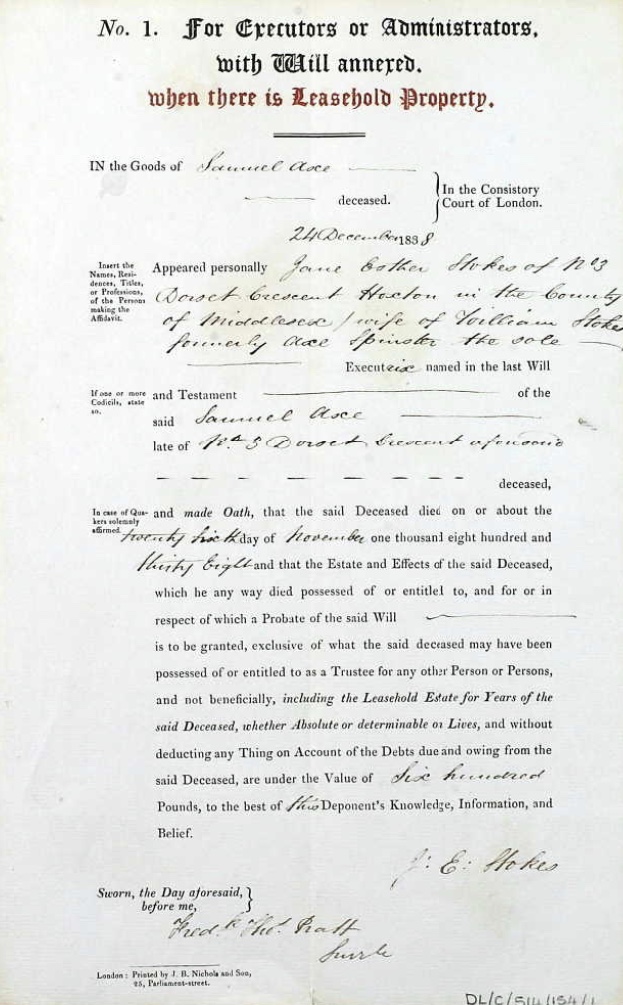 No. 1. For Executors or Administrators,
with Will annexed.
when there is Leasehold Property.
IN the Goods of Samuel Axe
deceased.
In the Consistory
Court of London.
24 December 1838
Insert the
Names, Resi-
dences, Titles,
or Professions,
of the Persons
making the
Affidavit.
Appeared personally Jane Esther Stokes of No 3
Dorset Crescent Hoxton in the County
of Middlesex / wife of William Stokes
formerly Axe Spinster the sole
Executrix named in the last Will
If one or more
Codicils, state
so.
and Testament of the
said Samuel Axe
late of No 3 Dorset Crescent aforesaid
deceased,
In case of Qua-
kers solemnly
affirmed.
and made Oath, that the said Deceased died on or about the
twenty sixth day of November one thousand eight hundred and
thirty Eight and that the Estate and Effects of the said Deceased,
which he any way died possessed of or entitled to, and for or in
respect of which a Probate of the said Will
is to be granted, exclusive of what the said deceased may have been
possessed of or entitled to as a Trustee for any other Person or Persons,
and not beneficially, including the Leasehold Estate for Years of the
said Deceased, whether Absolute or determinable on Lives, and without
deducting any Thing on Account of the Debts due and owing from the
said Deceased, are under the Value of Six hundred
Pounds, to the best of this Deponent's Knowledge, Information, and
Belief.
J: E: Stokes
Sworn, the Day aforesaid,
before me,
Fredk Thos. Pratt
Surr
London: Printed by J. B. Nichols and Son,
25, Parliament-street.
DL/C/514/154/1